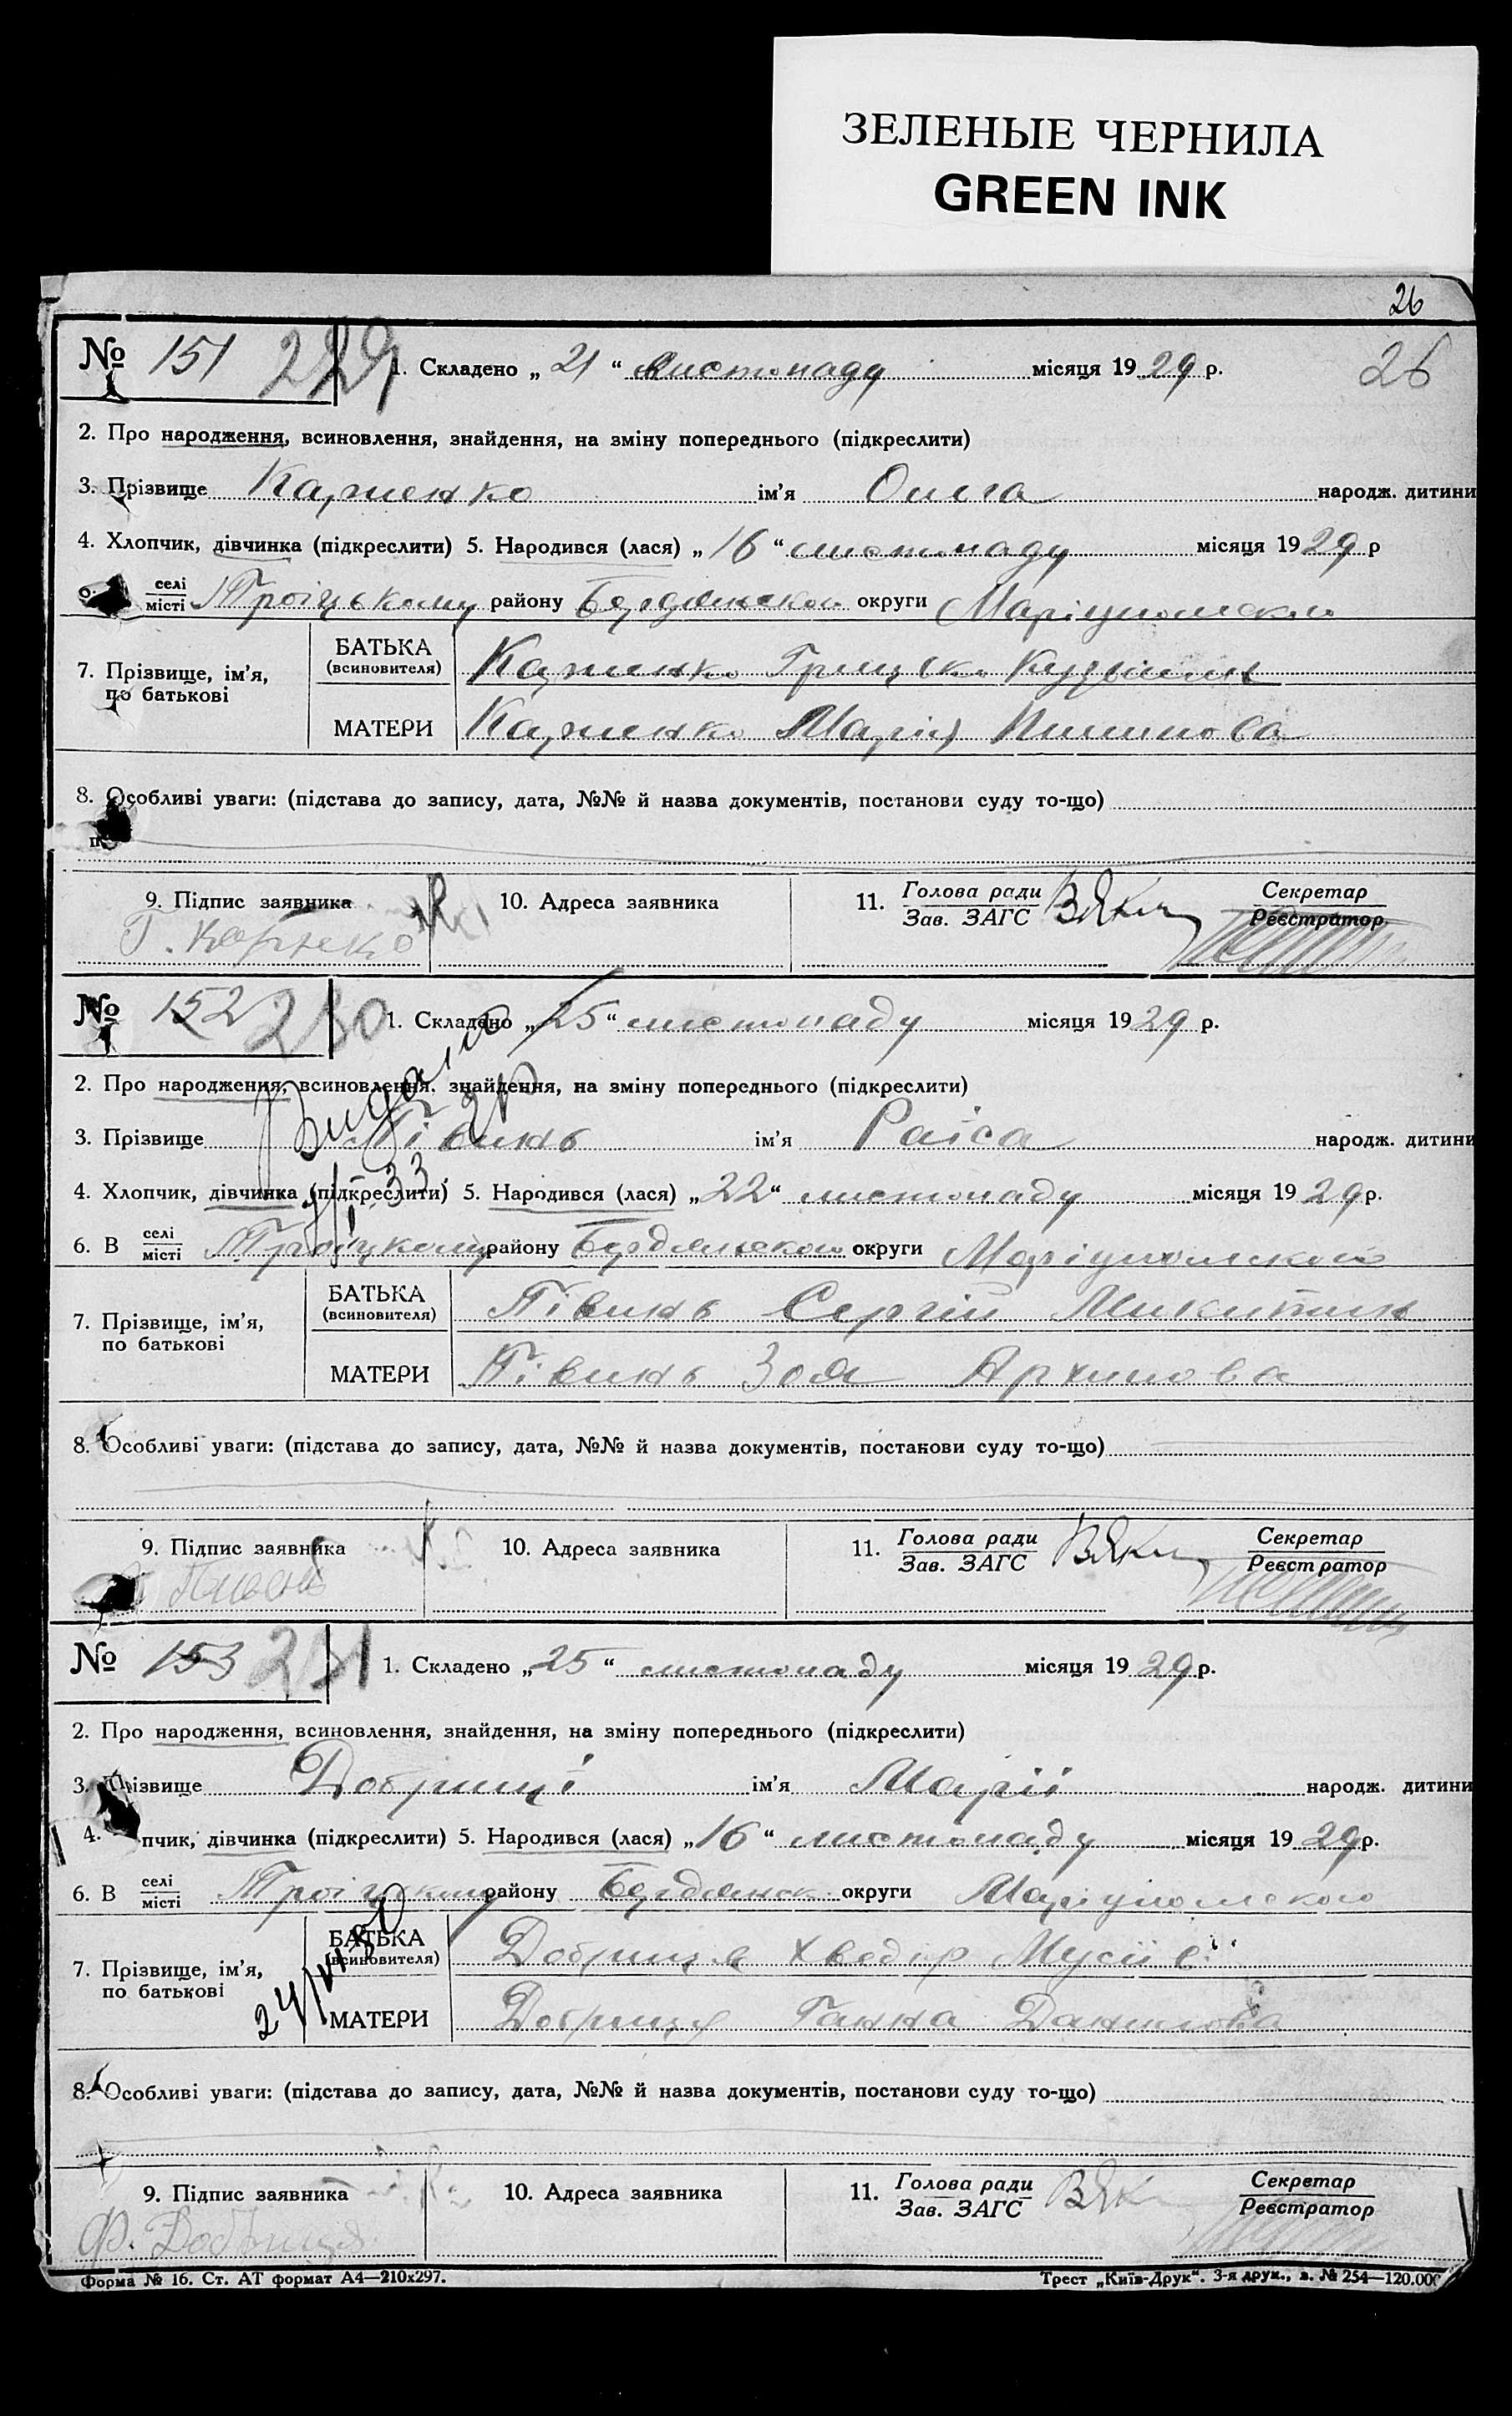 ЗЕЛЕНЫЕ ЧЕРНИЛА
GREEN INK
26
№ 151 229 1. Складено „21“ листопаду місяця 1929 р. 26
2. Про народження, всиновлення, знайдення, на зміну попереднього (підкреслити)
3. Прізвище ім'я Ольга народж. дитини
4. Хлопчик, дівчинка (підкреслити) 5. Народився (лася) „16“ листопаду місяця 1929 р
селі
місті Троіцькому району Бердянского округи Маріупольского
7. Прізвище, ім'я,
по батькові
БАТЬКА
(всиновителя) Грицько
МАТЕРИ Марія
8. Особливі уваги: (підстава до запису, дата, №№ й назва документів, постанови суду то-що)
9. Підпис заявника 10. Адреса заявника 11. Голова ради
Зав. ЗАГС
Секретар
Реєстратор
№ 152 230 1. Складено „25“ листопаду місяця 1929 р.
2. Про народження, всиновлення, знайдення, на зміну попереднього (підкреслити)
Видано
3. Прізвище Півинь ім'я Раіса народж. дитини
4. Хлопчик, дівчинка (підкреслити) 5. Народився (лася) „22“ листопаду місяця 1929 р.
6. В селі
місті Троіцкому району Бердянского округи Маріупольского
7. Прізвище, ім'я,
по батькові
БАТЬКА
(всиновителя) Півинь Сергій Микитин
МАТЕРИ Півинь Зоя Архипова
8. Особливі уваги: (підстава до запису, дата, №№ й назва документів, постанови суду то-що)
9. Підпис заявника 10. Адреса заявника 11. Голова ради
Зав. ЗАГС
Секретар
Реєстратор
№ 153 231 1. Складено „25“ листопаду місяця 1929 р.
2. Про народження, всиновлення, знайдення, на зміну попереднього (підкреслити)
3. Прізвище Добриці ім'я Марії народж. дитини
4. пчик, дівчинка (підкреслити) 5. Народився (лася) „16“ листопаду місяця 1929 р.
6. В селі
місті Троіцкому району Бердянск. округи Маріупольского
7. Прізвище, ім'я,
по батькові
БАТЬКА
(всиновителя) Добриця Хведір
МАТЕРИ Добриця Ганна Данилова
8. Особливі уваги: (підстава до запису, дата, №№ й назва документів, постанови суду то-що)
9. Підпис заявника 10. Адреса заявника 11. Голова ради
Зав. ЗАГС
Секретар
Реєстратор
Ф. Добриця
Форма № 16. Ст. АТ формат А4—210х297. Трест „Київ-Друк“. 3-я друк., з. № 254—120.000